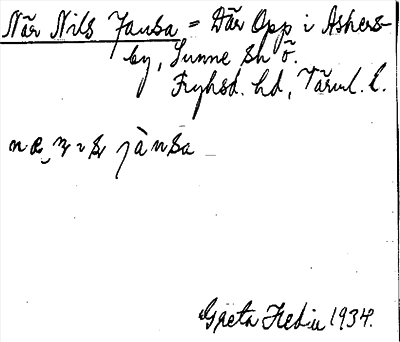 När Nils Jansa = Där Opp i Askers-
by, Sunne sn ö.
Fryksd. hd, Värml. l.
jànsa
Greta Hedin 1934.